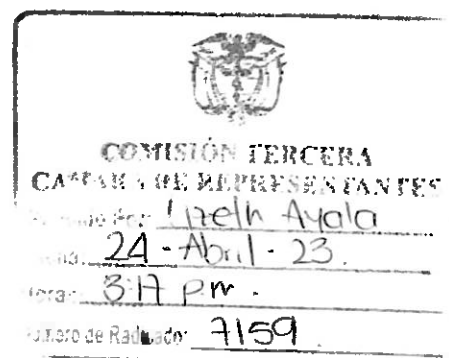 COMISIÓN TERCERA
CAMARA DE REPRESENTANTES
Por: Lizeth Ayala
Fecha: 24-Abril-23.
Hora: 3:17 pm.
Número de Radicado: 7159